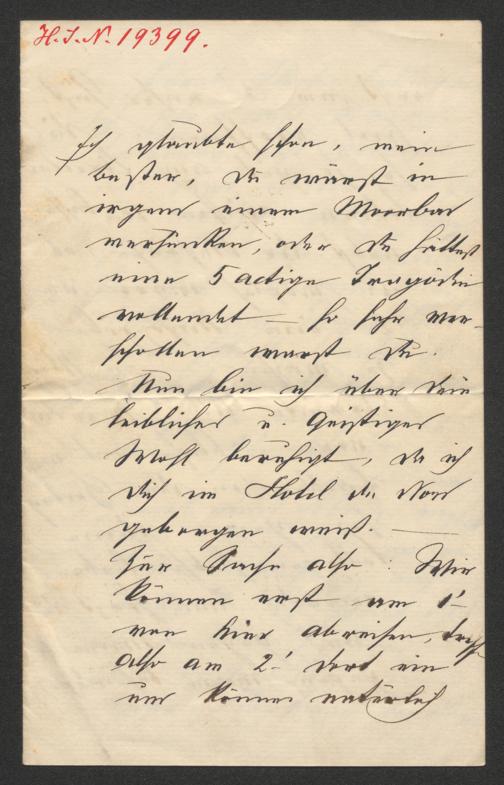 H.I.N. 19399.
Ich glaubte schon, mein
bester, du wärst in
irgend einem Moorbad
versunken, oder du hättest
eine 5 actige Tragödie
vollendet — so sehr ver-
schollen warst du.
Nun bin ich über dein
leibliches u. geistiges
Wohl beruhigt, da ich
dich im Hotel du Nord
geborgen weiß. —
Zur Sache also: Wir
können erst am 1t
von hier abreisen, treffe
also am 2t dort ein
und können natürlich